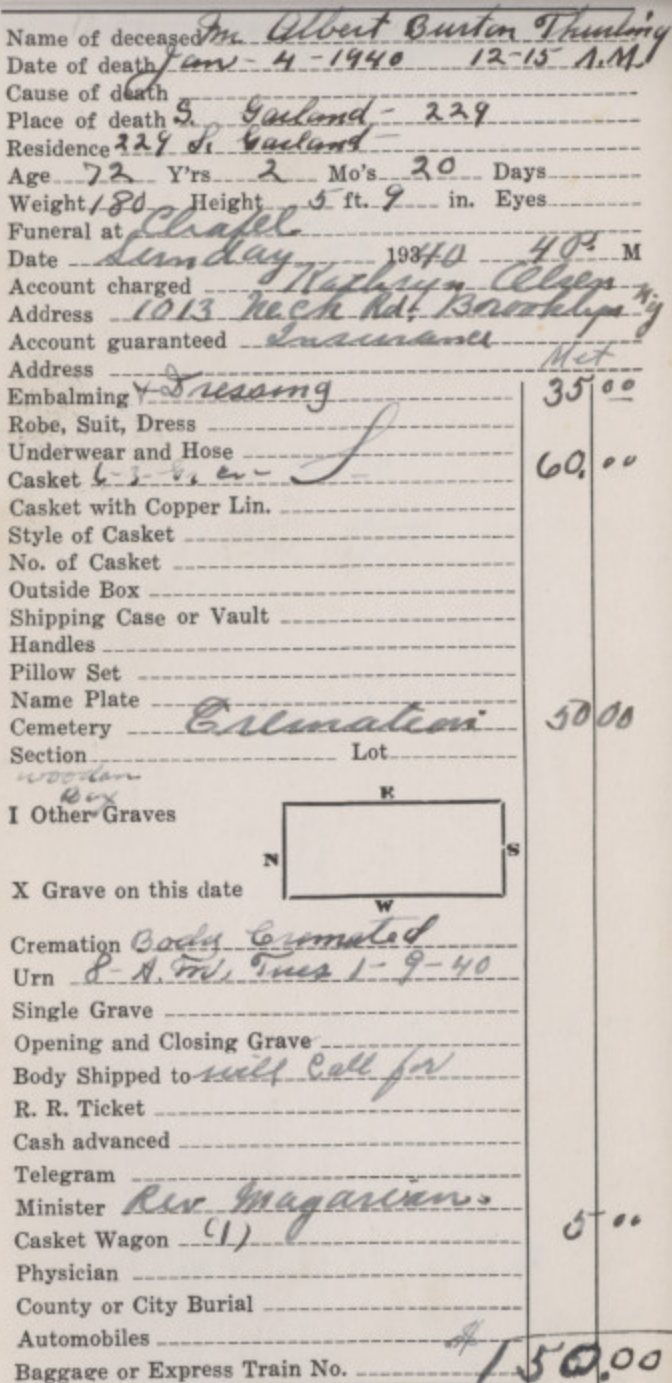 Name of deceased Mr Albert Burton
Date of death Jan - 4 - 1940 12-15 A.M.
Cause of death
Place of death S. Garland - 229
Residence 229 S. Garland
Age 72 Y'rs 2 Mo's 20 Days
Weight 180 Height 5 ft. 9 in. Eyes
Funeral at Chapel
Date Sunday 19340 4 P. M
Account charged Kathryn Olsen
Address 1013 Neck Rd. Brooklyn NY
Account guaranteed Insurance
Address Met
Embalming & Dressing 35 00
Robe, Suit, Dress
Underwear and Hose
Casket 6-3 60. 00
Casket with Copper Lin.
Style of Casket
No. of Casket
Outside Box
Shipping Case or Vault
Handles
Pillow Set
Name Plate
Cemetery Cremation 50 00
Section Lot
wooden
Box
I Other Graves
E
N S
X Grave on this date
W
Cremation Body Cremated
Urn 8- A.M. Tues 1-9-40
Single Grave
Opening and Closing Grave
Body Shipped to will Call for
R. R. Ticket
Cash advanced
Telegram
Minister Rev
Casket Wagon (1) 5 00
Physician
County or City Burial
Automobiles
Baggage or Express Train No. 150.00